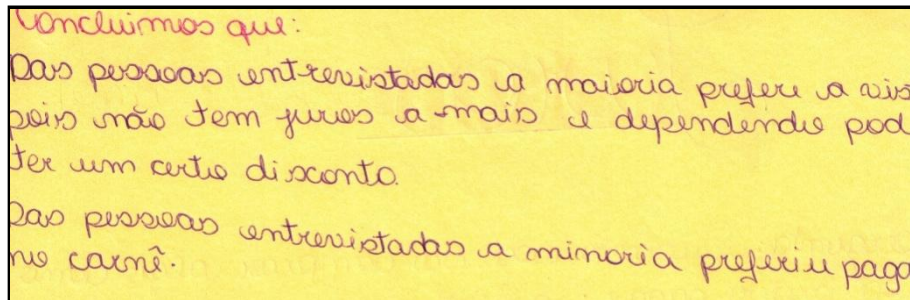 Concluimos que:
Das pessoas entrevistadas a maioria prefere a vis
pois não tem juros a mais e dependendo pod
ter um certo disconto.
Das pessoas entrevistadas a minoria preferiu paga
no carnê.